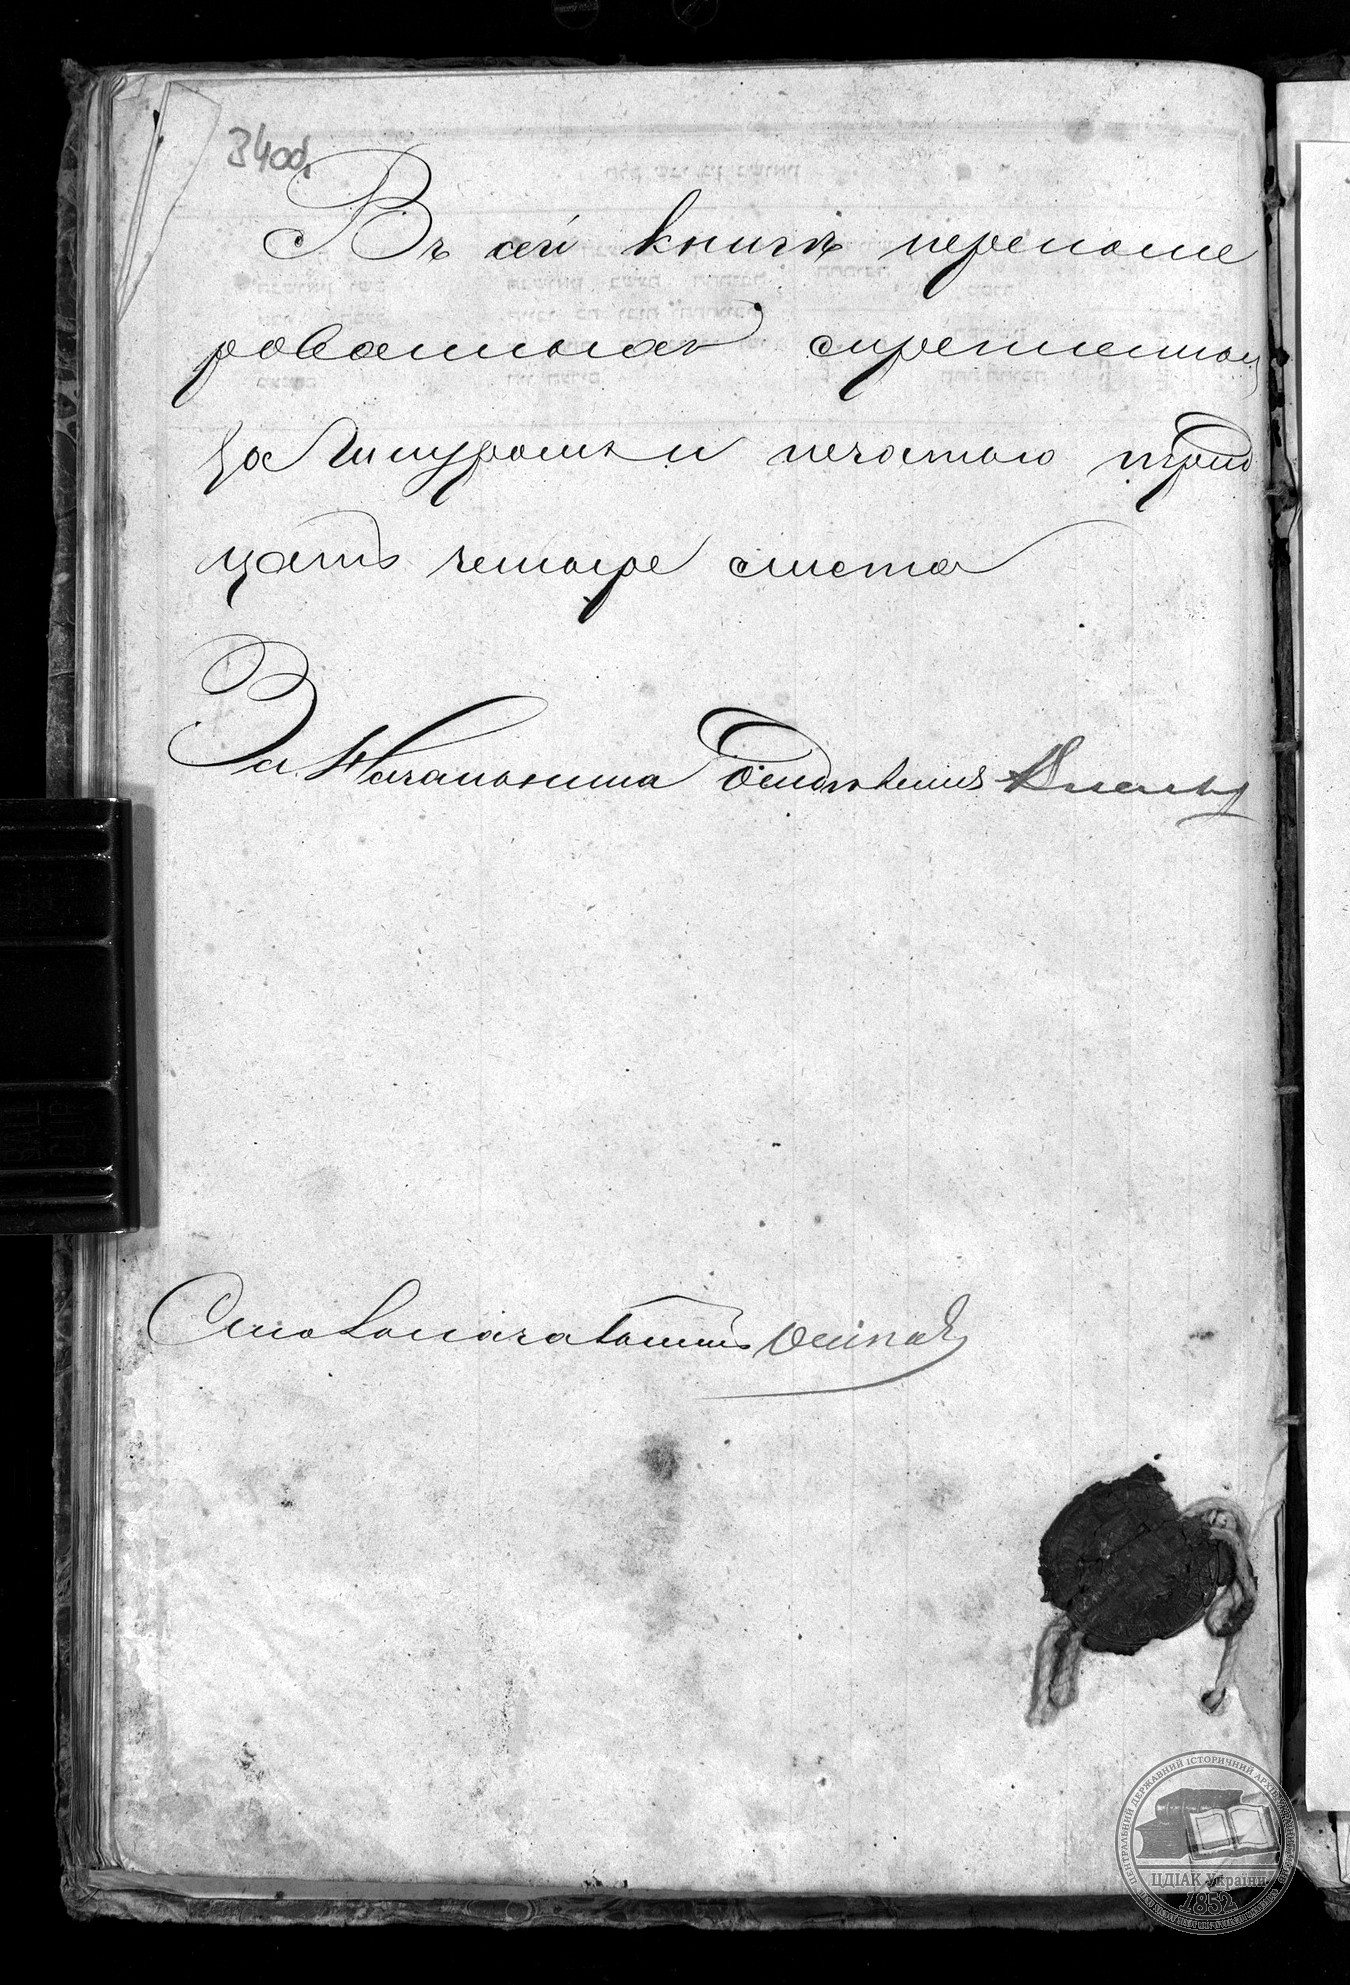 34об.
Въ сей книгѣ перенуме
рованныхъ скрепленных
за шнуромъ и печатью трид
цать четыре листа
За Начальника Отделения
Столоначальникъ Осипов
ЦЕНТРАЛЬНИЙ ДЕРЖАВНИЙ ІСТОРИЧНИЙ АРХІВ УКРАЇНИ
ЦДІАК України
1852